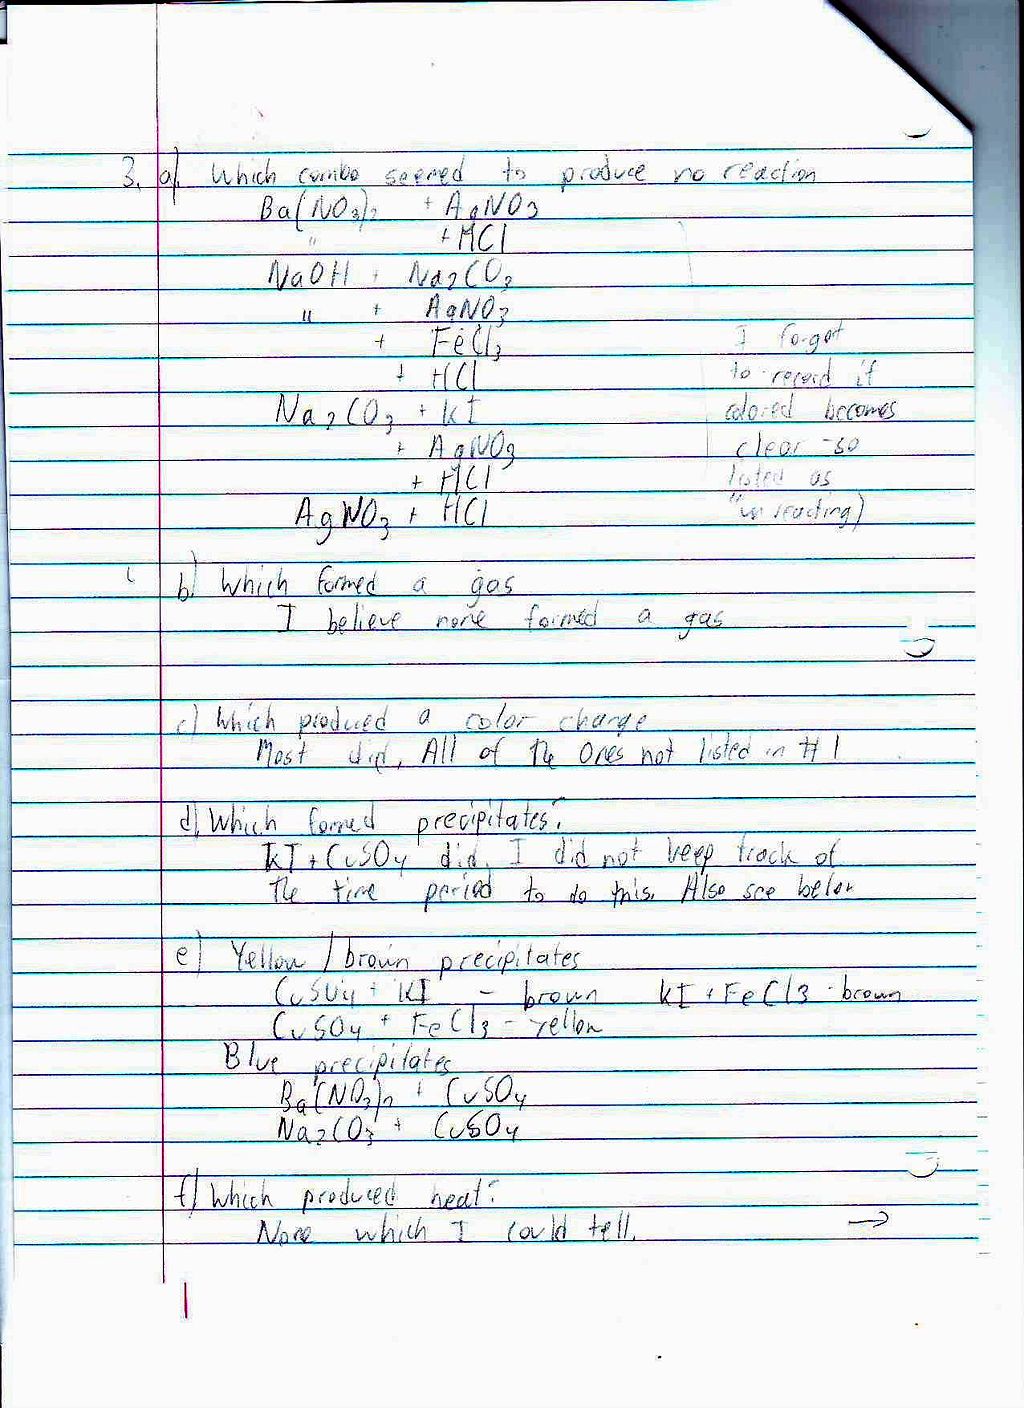 3. a). Which combo seemed to produce no reaction
Ba(NO3)2 + AgNO3
" + HCl
NaOH + Na2CO3
" + AgNO3
+ FeCl3
+ HCl
Na2CO3 + kI
+ AgNO3
+ HCl
AgNO3 + HCl
I forgot
to record if
colored becomes
clear - so
listed as
"un reacting)
b) Which formed a gas
I believe none formed a gas
c) Which produced a color change
Most did, All of the ones not listed in #1
d) Which formed precipitates?
kI + CuSO4 did. I did not keep track of
the time period to do this. Also see below
e) Yellow / brown precipitates
CuSO4 + KI - brown kI + FeCl3 - brown
CuSO4 + FeCl3 - Yellow
Blue precipitates
Ba(NO3)2 + CuSO4
Na2CO3 + CuSO4
f) Which produced heat?
None which I could tell. →